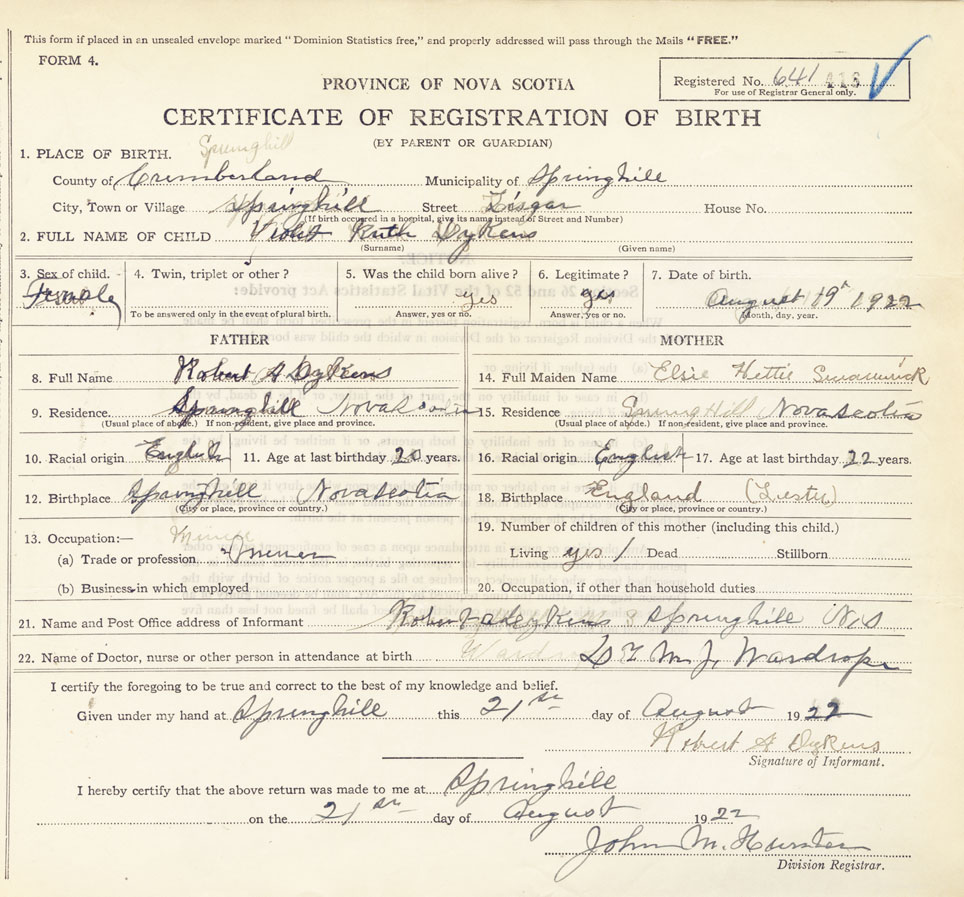 This form if placed in an unsealed envelope marked "Dominion Statistics free," and properly addressed will pass through the Mails "FREE."
FORM 4.
Registered No. 641 416
For use of Registrar General only.
PROVINCE OF NOVA SCOTIA
CERTIFICATE OF REGISTRATION OF BIRTH
(BY PARENT OR GUARDIAN)
1. PLACE OF BIRTH. Springhill
County of Cumberland Municipality of Springhill
City, Town or Village Springhill Street Lisgar House No.
(If birth occurred in a hospital, give its name instead of Street and Number)
2. FULL NAME OF CHILD Violet Ruth Dykens
(Surname) (Given name)
3. Sex of child. 4. Twin, triplet or other? 5. Was the child born alive? 6. Legitimate? 7. Date of birth.
Female yes yes August 19 1922
To be answered only in the event of plural birth. Answer, yes or no. Answer, yes or no. Month, day, year.
FATHER MOTHER
8. Full Name Robert A Dykens 14. Full Maiden Name Elsie Hettie
9. Residence. Springhill Nova Scotia 15. Residence Spring Hill Nova Scotia
(Usual place of abode.) If non-resident, give place and province. (Usual place of abode.) If non-resident, give place and province.
10. Racial origin English 11. Age at last birthday 20 years. 16. Racial origin English 17. Age at last birthday 22 years.
12. Birthplace Springhill Nova Scotia 18. Birthplace England
(City or place, province or country.) (City or place, province or country.)
13. Occupation:— 19. Number of children of this mother (including this child.)
Miner
(a) Trade or profession miner Living yes 1 Dead Stillborn
(b) Business in which employed 20. Occupation, if other than household duties
21. Name and Post Office address of Informant Robert A Dykens Springhill N.S
22. Name of Doctor, nurse or other person in attendance at birth Dr M. J. Wardrope
I certify the foregoing to be true and correct to the best of my knowledge and belief.
Given under my hand at Springhill this 21st day of August 1922
Robert A Dykens
Signature of Informant.
I hereby certify that the above return was made to me at Springhill
on the 21st day of August 1922
John M. Hunter
Division Registrar.